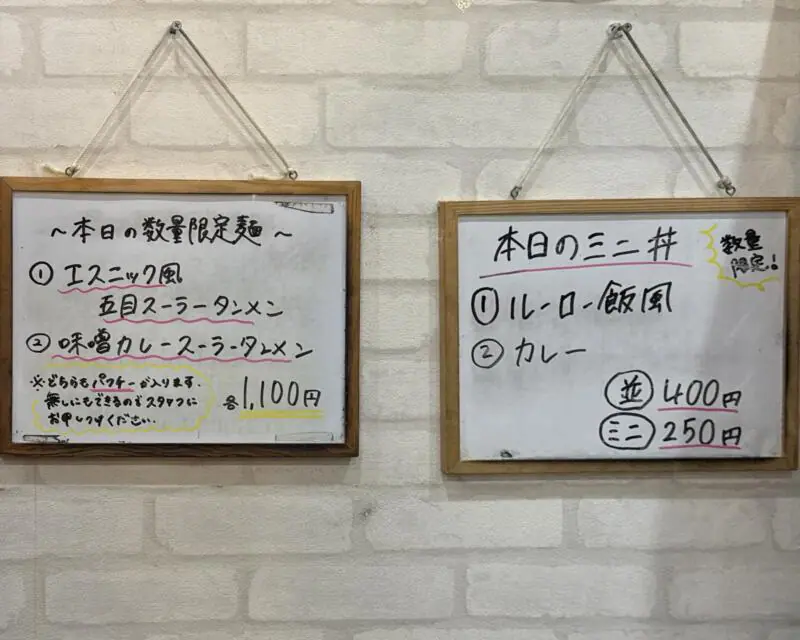 ～本日の数量限定麺～
① エスニック風
五目スーラータンメン
② 味噌カレースーラータンメン
※どちらもパクチーが入ります。
無しにもできるのでスタッフに
お申しつけください。
各1,100円
本日のミニ丼
数量
限定!
① ルーロー飯風
② カレー
並 400円
ミニ 250円